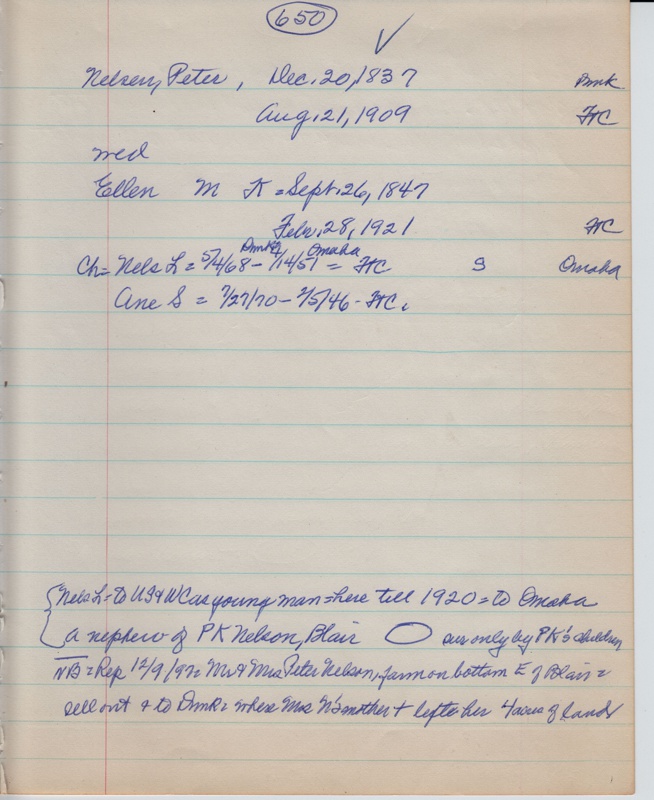 650
Nelsen, Peter, Dec. 20, 1837 Dmk
Aug. 21, 1909 HC
wed
Ellen M K = Sept. 26, 1847
Febr. 28, 1921 HC
Dmk Omaha
Ch = Nels L = 5/4/68 - /14/51 = HC S Omaha
Ane S = 7/27/70 - 2/5/46 - HC.
Nels L = to US & WC as young man = here till 1920 = to Omaha
a nephew of PK Nelson, Blair only by PK's children
NB = Rep 12/9/92 = Mr & Mrs Peter Nelson, farm on bottom E of Blair =
sell out & to Dmk = where Mrs N's mother + left her 4 acres of land